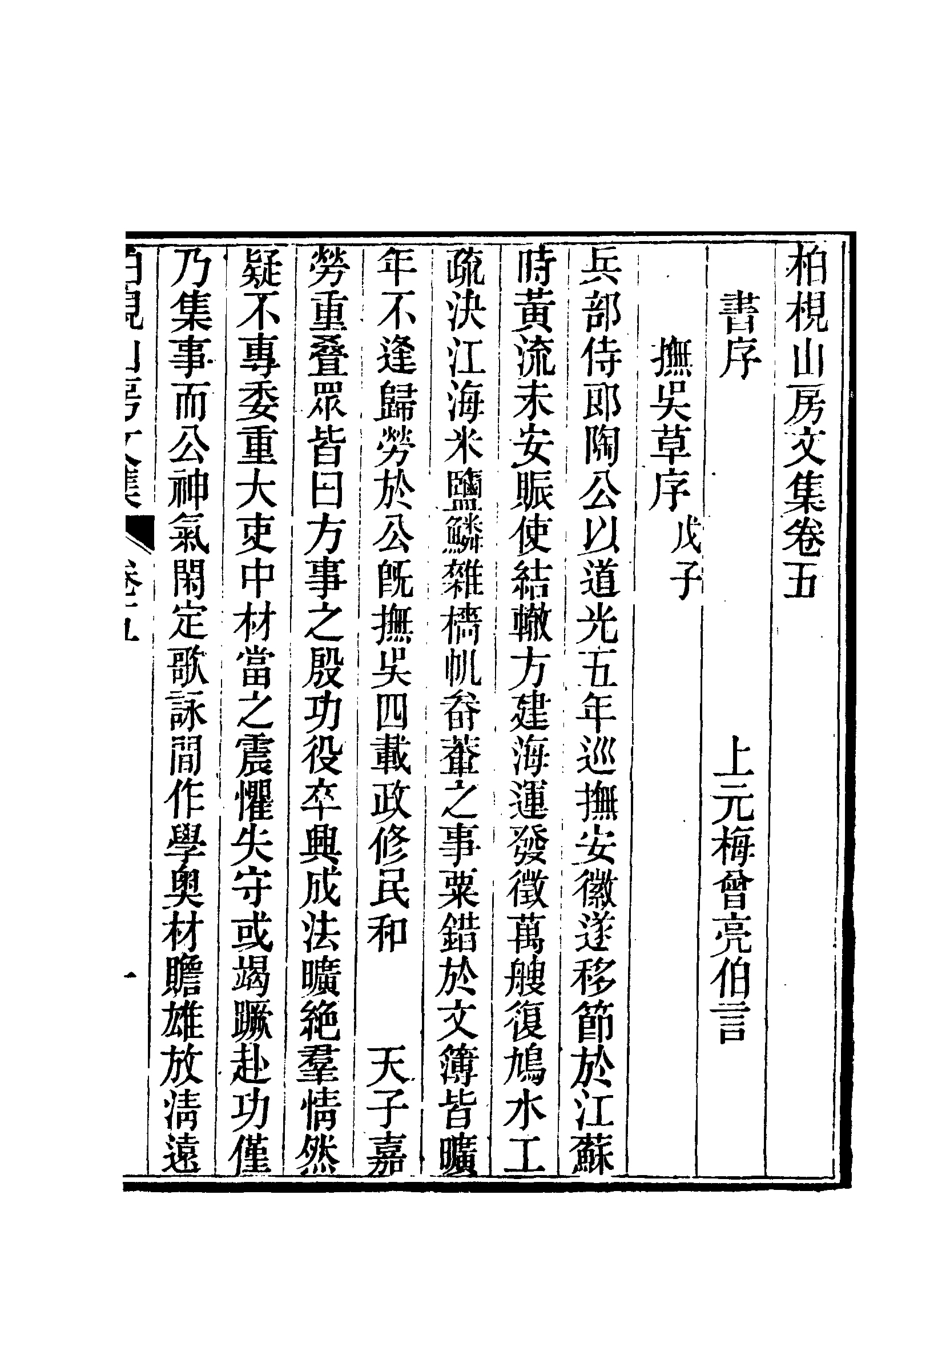 柏梘山房文集卷五
書序　上元梅曾亮伯言
撫吳草序戊子
兵部侍郎陶公以道光五年巡撫安徽遂移節於江蘇
時黃流未安賑使結轍方建海運發徵萬艘復鳩水工
疏決江海米鹽鱗雜檣帆畚虆之事粟錯於文簿皆曠
年不逢歸勞於公旣撫吳四載政修民和　天子嘉
勞重疊眾皆曰方事之殷功役卒興成法曠絶羣情然
疑不專委重大吏中材當之震懼失守或竭蹶赴功僅
乃集事而公神氣閑定歌詠間作學奥材贍雄放淸遠
柏梘山房文集　卷五　一